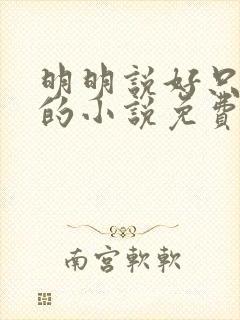 明明說好只
的小說免費
南宮軟軟